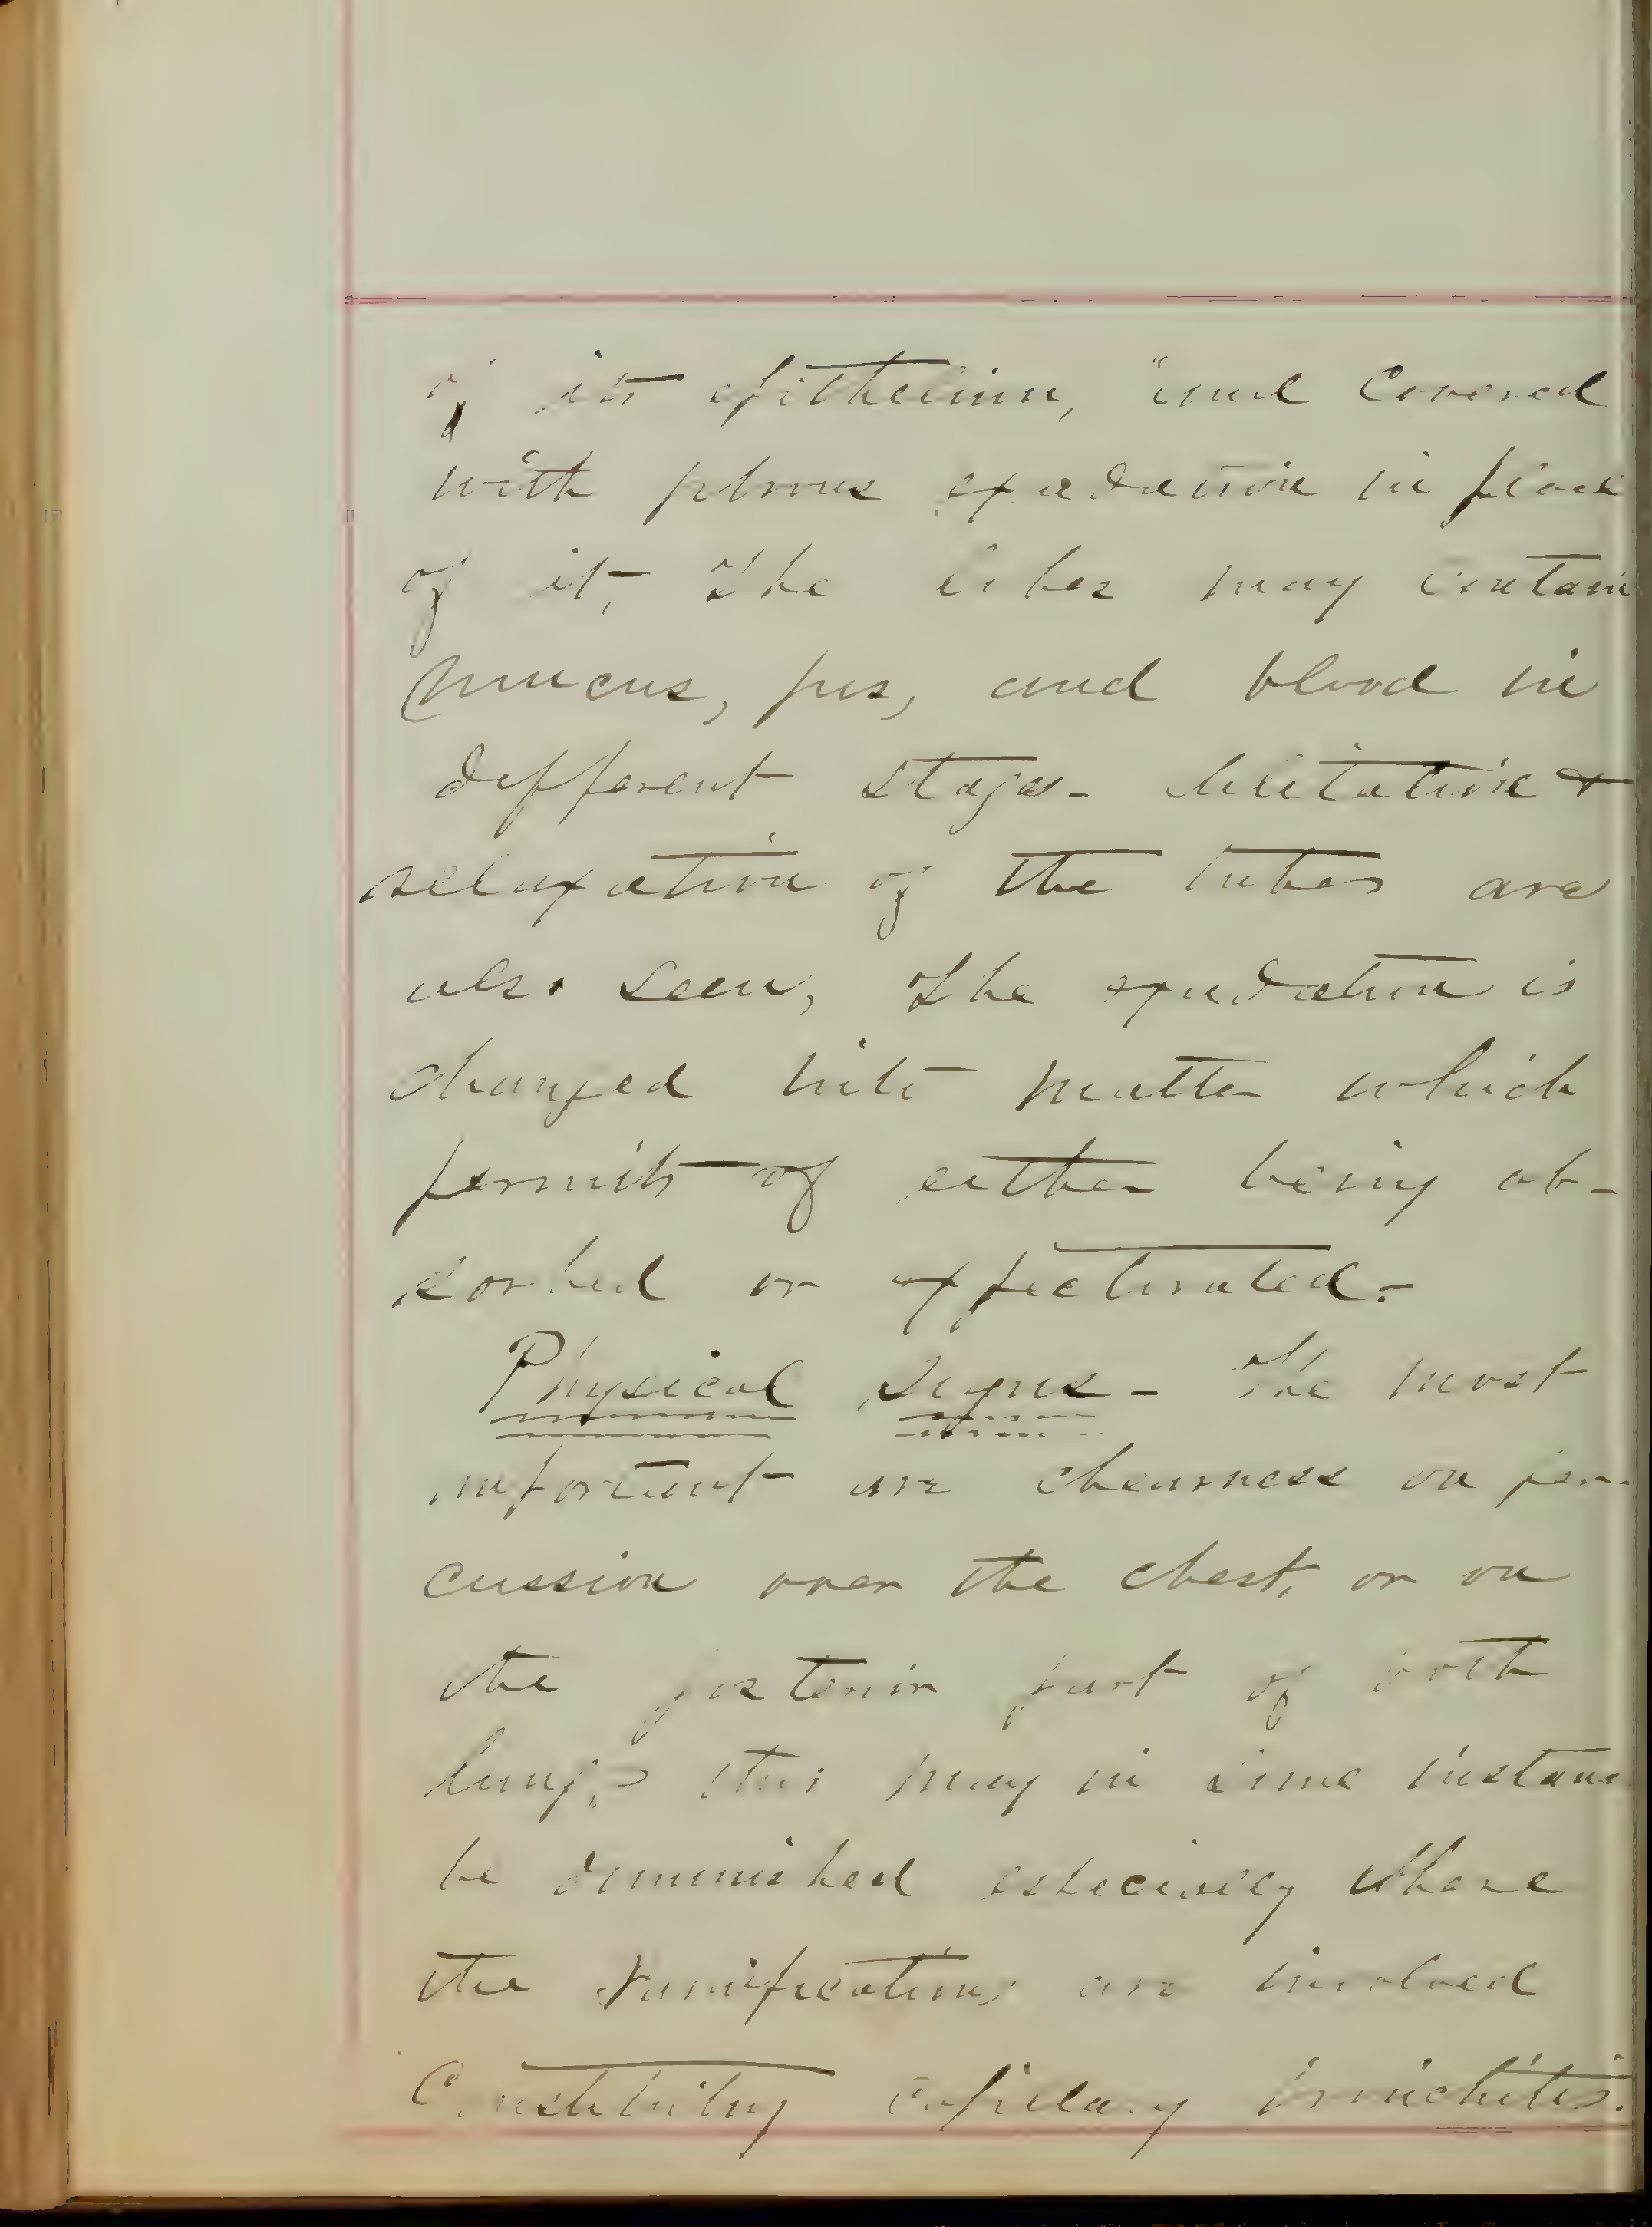 of its epithelium, and covered
with fibrous exudation in place
of it, The tubes may contain
mucus, pus, and blood in
different stages - dilitation &
relaxation of the tubes are
also seen, The exudation is
changed into matter which
permits of either being ab-
sorbed or expectorated -
Physical Signs - The most
important are clearness on per-
cussion over the chest, or on
the posterior part of both
lungs - this may in some instanc
be diminished especially where
the ramifications are involved
Constituting capillary bronchitis.